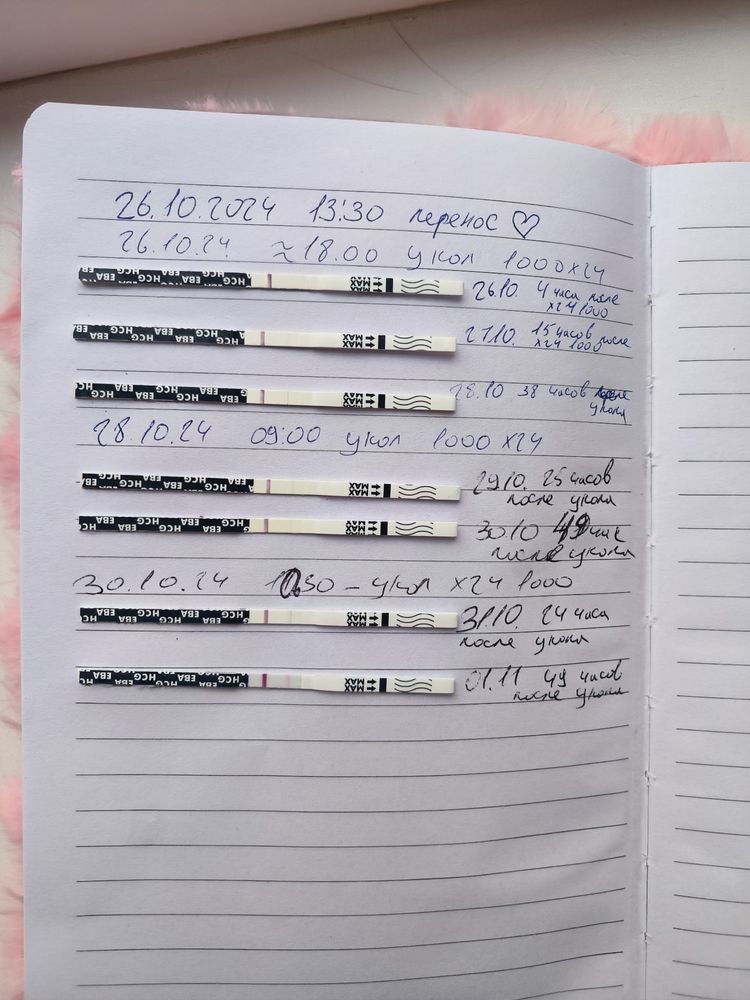 26.10.2024 13:30 перенос ♡
26.10.24. ≈18.00 укол 1000 хгч
HCG EBA HCG EBA HCG EBA MAX MAX
26.10. 4 часа после
хгч 1000
HCG EBA HCG EBA HCG MAX MAX
27.10. 15 часов после
хгч 1000
HCG EBA HCG EBA HCG MAX MAX
28.10 38 часов после
укола
28.10.24 09:00 укол 1000 хгч
HCG EBA HCG EBA HCG MAX MAX
29.10. 25 часов
после укола
HCG EBA HCG EBA HCG EBA MAX MAX
30.10 49 час
после укола
30.10.24 10:30 – укол хгч 1000
HCG EBA HCG EBA HCG MAX MAX
31.10. 24 часа
после укола
HCG EBA HCG EBA HCG MAX MAX
01.11 49 часов
после укола